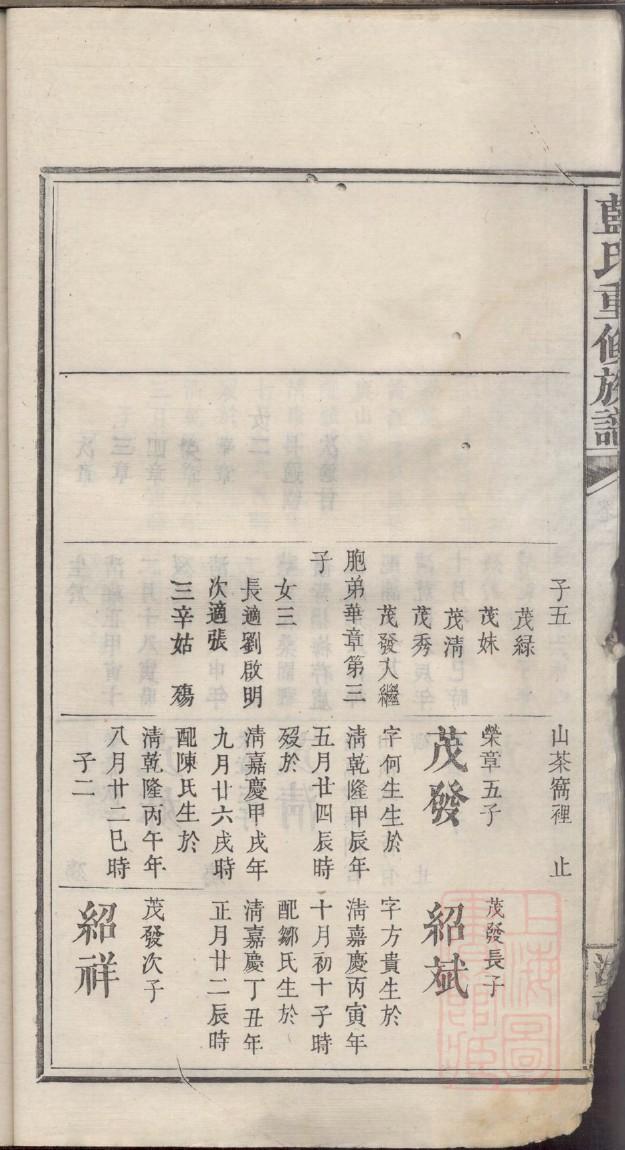 藍氏重修族譜
子五
茂緑
茂妹
茂清
茂秀
茂發入繼
胞弟華章第三
子
女三
長適劉啟明
次適張
三辛姑 殤
山茶窩裡 止
榮章五子
茂發
字何生生於
清乾隆甲辰年
五月廿四辰時
殁於
清嘉慶甲戌年
九月廿六戌時
配陳氏生於
清乾隆丙午年
八月廿二巳時
子二
茂發長子
紹斌
字方貴生於
清嘉慶丙寅年
十月初十子時
配鄒氏生於
清嘉慶丁丑年
正月廿二辰時
茂發次子
紹祥
上海圖書館藏